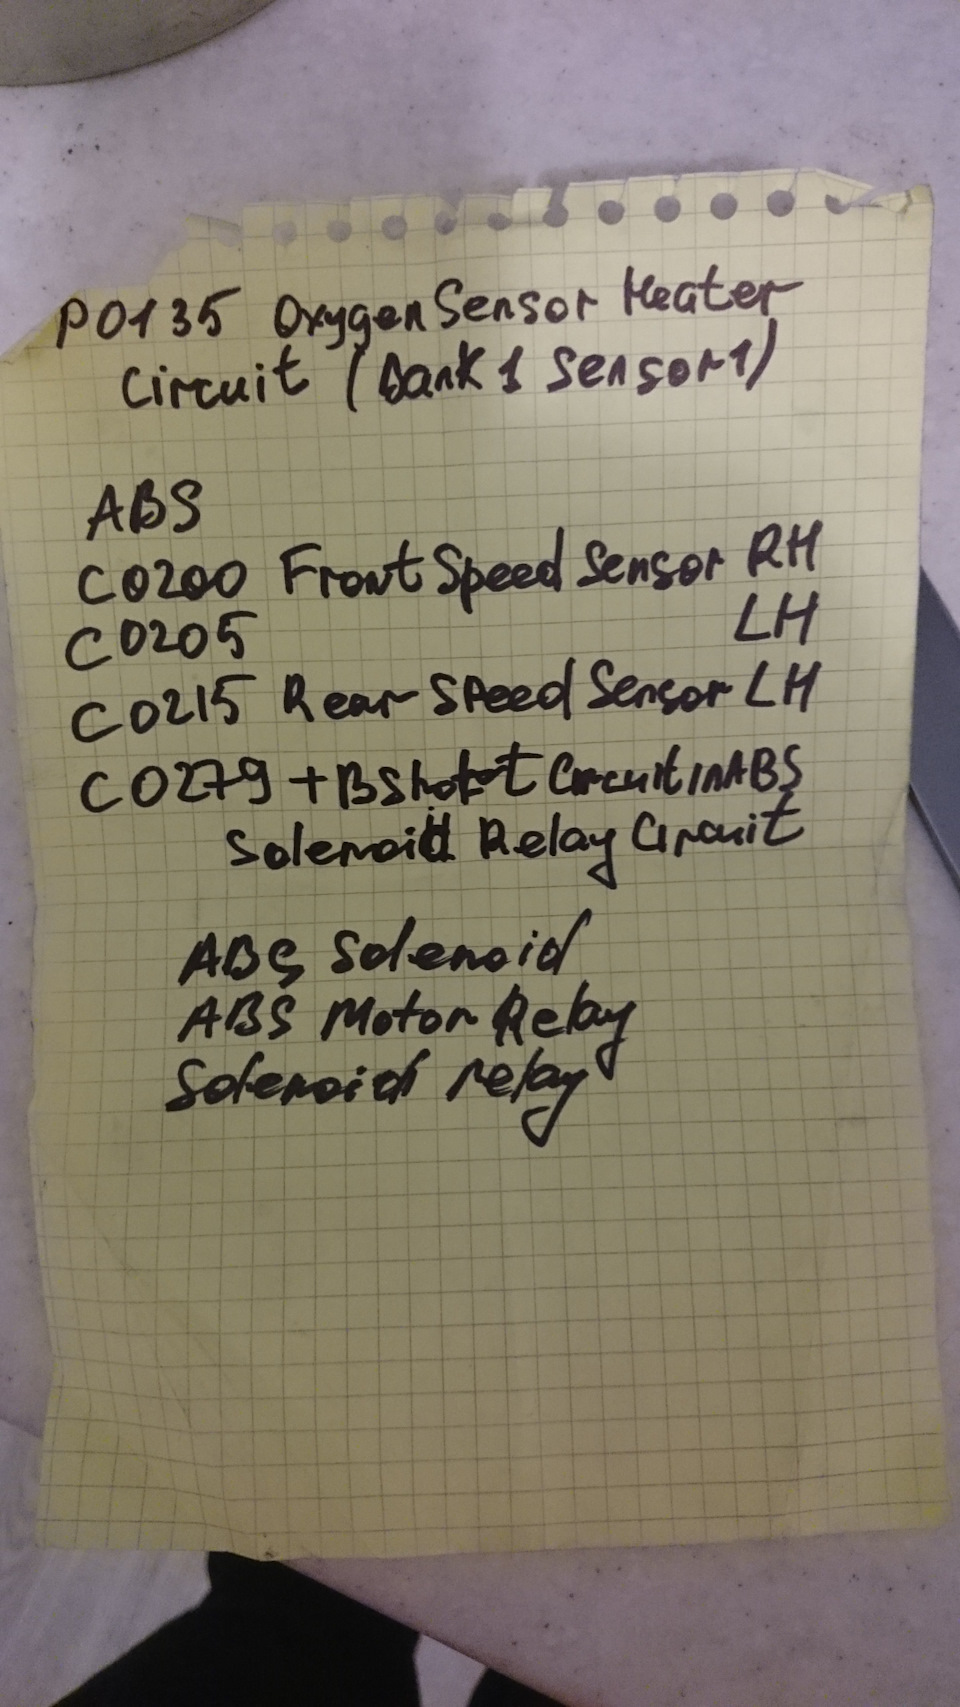 P0135 Oxygen Sensor Heater
Circuit (Bank 1 Sensor 1)
ABS
C0200 Front Speed Sensor RH
C0205 LH
C0215 Rear Speed Sensor LH
C0279 +B Short Circuit in ABS
Solenoid Relay Circuit
ABS Solenoid
ABS Motor Relay
Solenoid relay